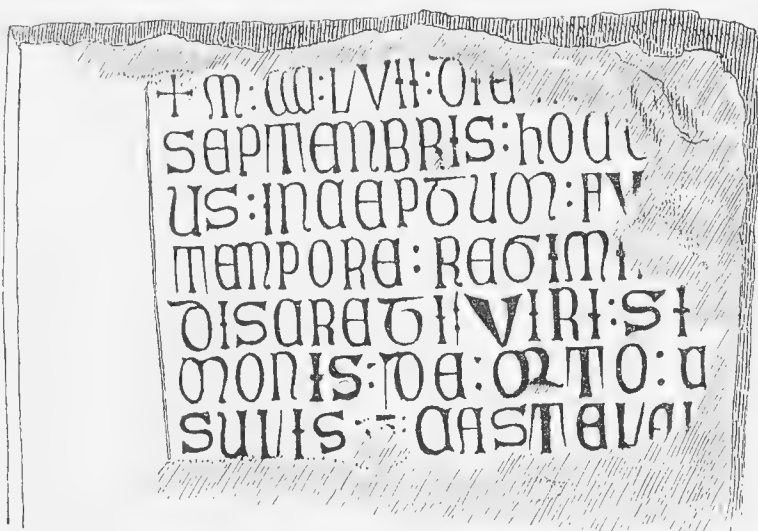 + M : CCC : LVII : DIE ...
SEPTEMBRIS : hOC
US : INCEPTUM : FV
TEMPORE : REGIMI
DISCRETI VIRI : SI
MONIS : DE : ORTO : C
SULIS : CASTELA